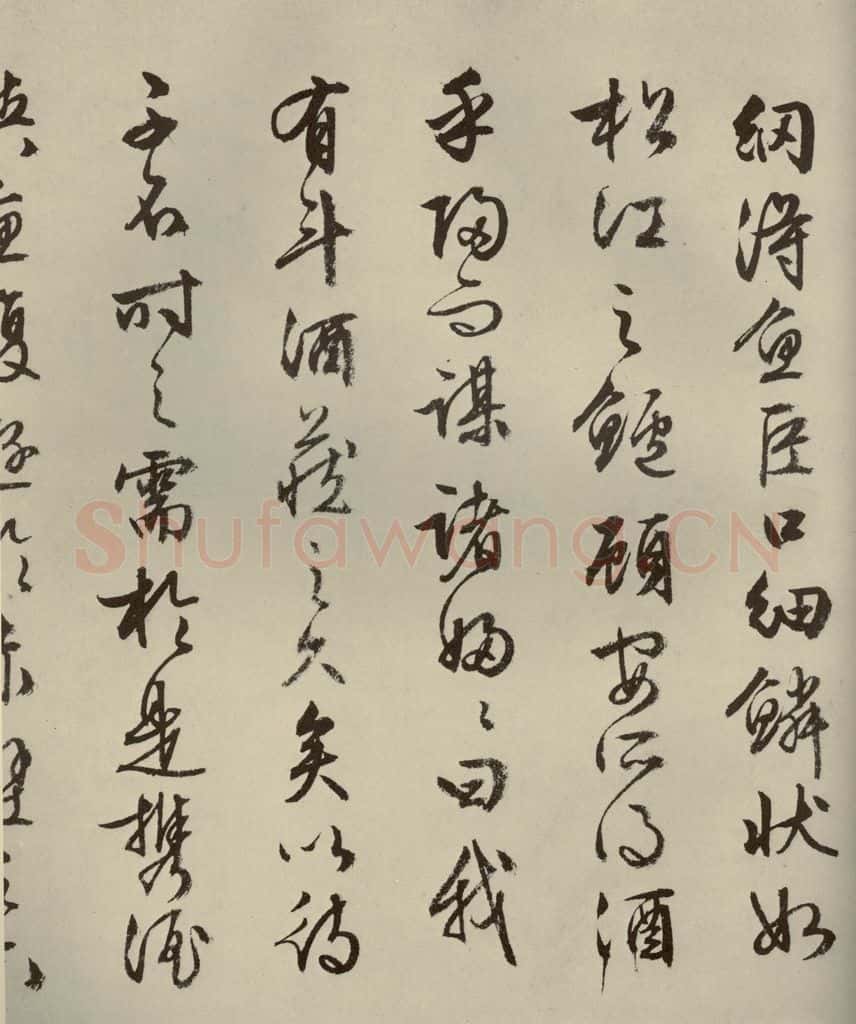 網得魚巨口細鱗狀如
松江之鱸顧安所得酒
乎歸而謀諸婦々曰我
有斗酒藏之久矣以待
子不時之需於是攜酒
與魚復遊於赤壁之下
Shufawang.CN